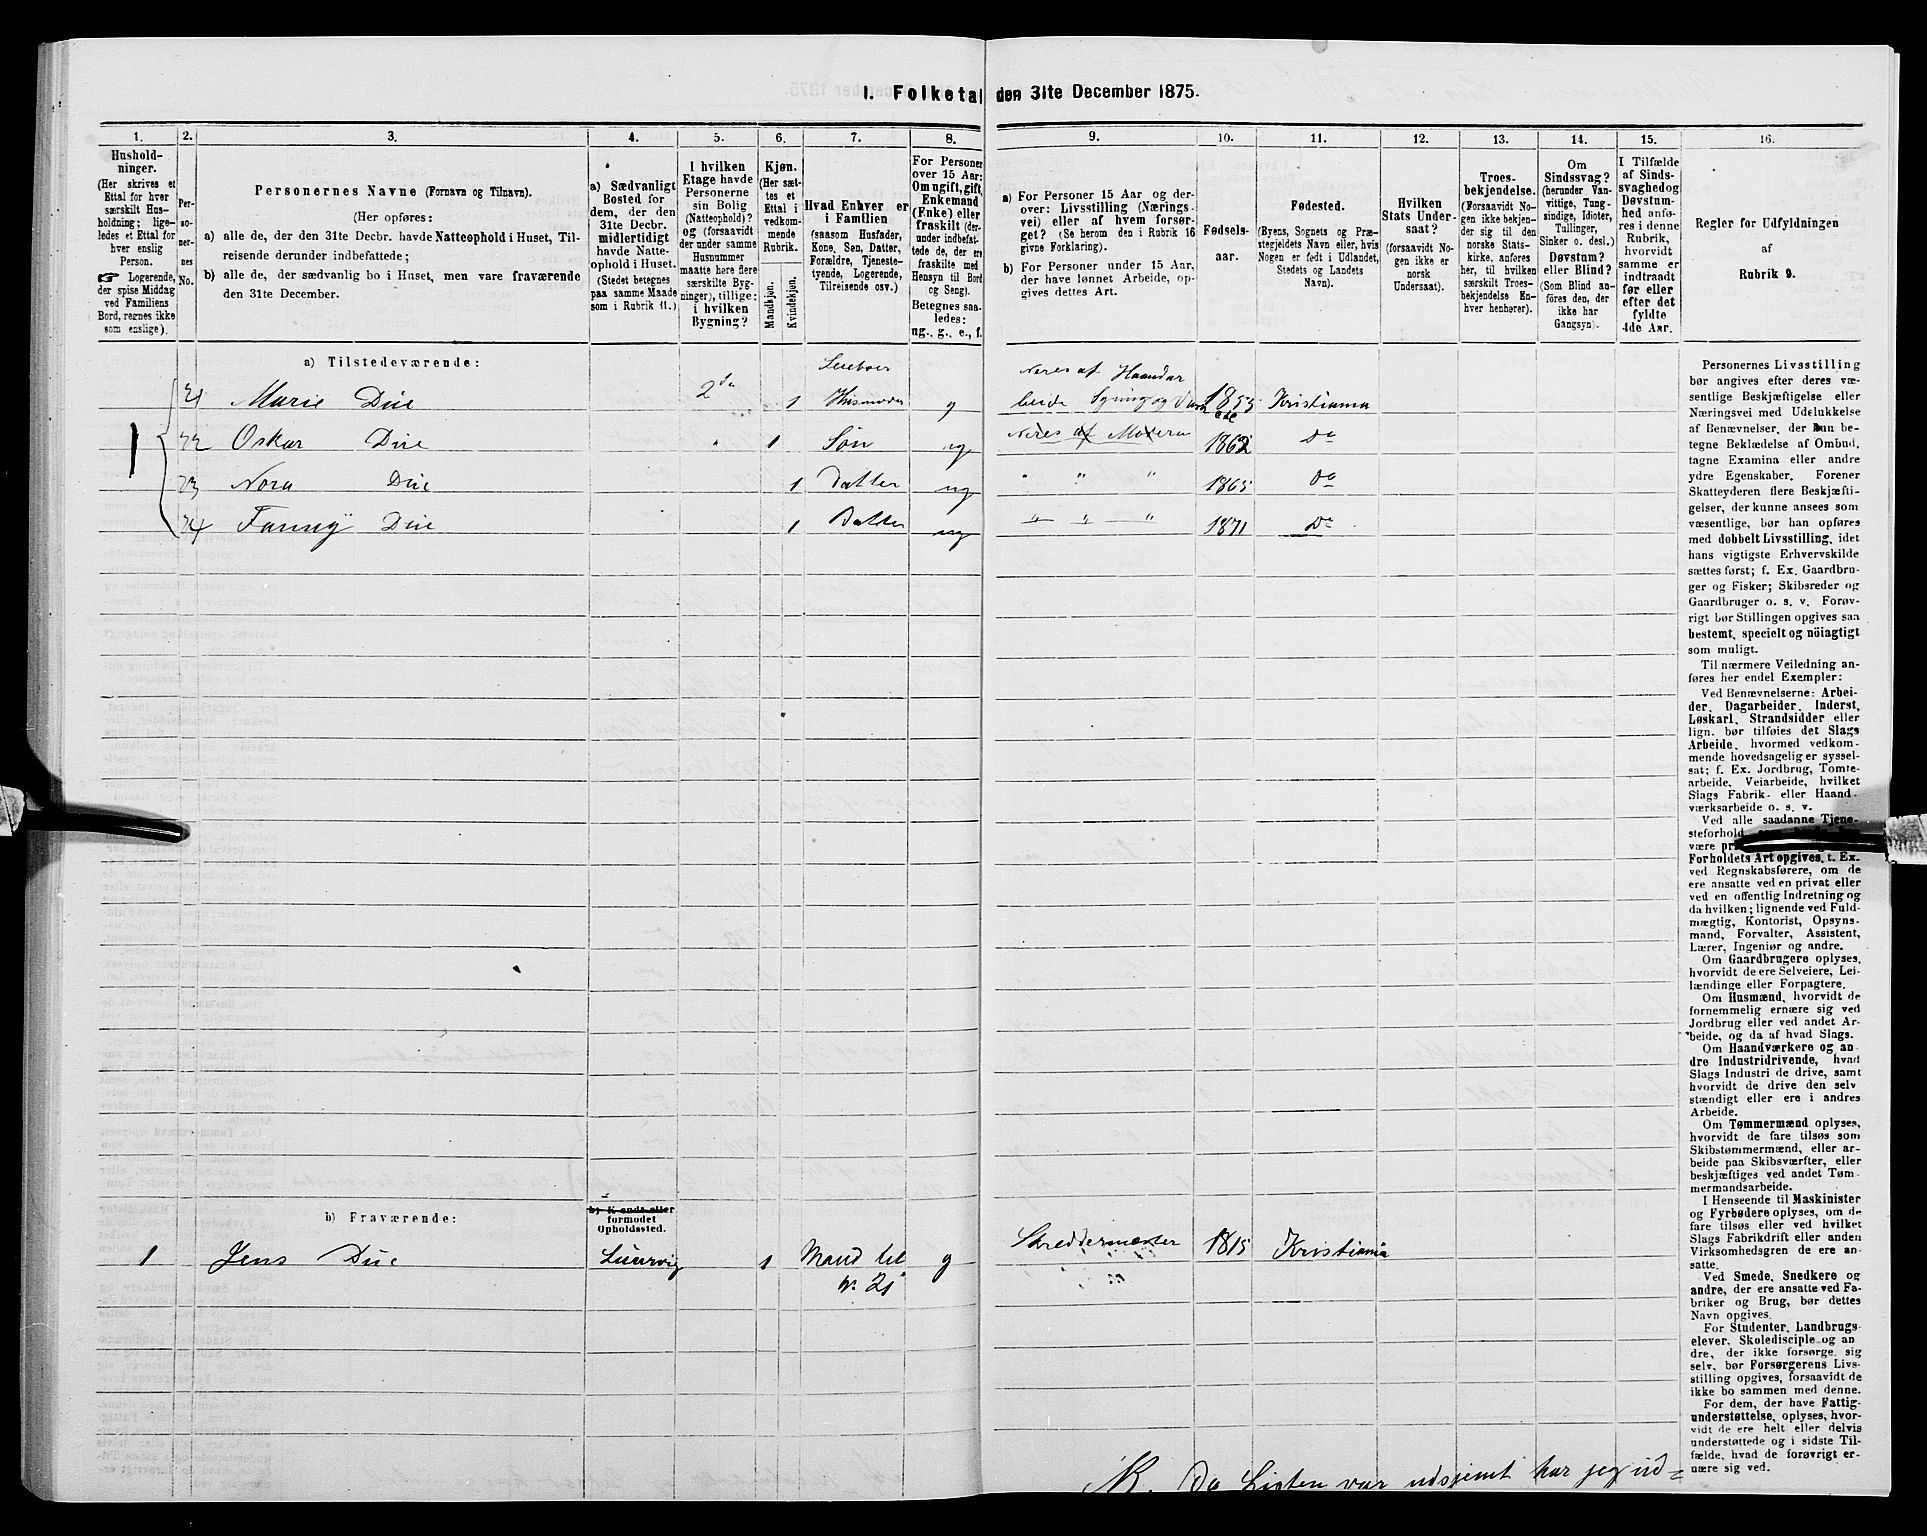 1. Folketal den 31te December 1875.
1. 2. 3. 4. 5. 6. 7. 8. 9. 10. 11. 12. 13. 14. 15. 16.
Hushold-
ninger.
(Her skrives et
Ettal for hver
særskilt Hus-
holdning; lige-
ledes et Ettal for
hver enslig
Person.
☞ Logerende,
der spise Middag
ved Familiens
Bord, regnes ikke
som enslige).
Per-
so-
ner-
nes
No.
Personernes Navne (Fornavn og Tilnavn).
(Her opføres:
a) alle de, der den 31te Decbr. havde Natteophold i Huset, Til-
reisende derunder indbefattede;
b) alle de, der sædvanlig bo i Huset, men vare fraværende
den 31te December.
a) Sædvanligt
Bosted for
dem, der den
31te Decbr.
midlertidigt
havde Natte-
ophold i Huset.
(Stedet betegnes
paa samme Maade
som i Rubrik 11.)
I hvilken
Etage havde
Personerne
sin Bolig
(Natteophold)?
og (forsaavidt
der under samme
Husnummer
maatte høre flere
særskilte Byg-
ninger), tillige:
i hvilken
Bygning?
Kjøn.
(Her sæt-
tes et
Ettal i
vedkom-
mende
Rubrik.
Mandkjøn.
Kvindekjøn.
Hvad Enhver er
i Familien
(saasom Husfader,
Kone, Søn, Datter,
Forældre, Tjeneste-
tyende, Logerende,
Tilreisende osv.)
For Personer
over 15 Aar:
Om ugift, gift,
Enkemand
(Enke) eller
fraskilt (der-
under indbefat-
tede de, der ere
fraskilte med
Hensyn til Bord
og Seng).
Betegnes saa-
ledes:
ug., g., e., f.
a) For Personer 15 Aar og der-
over: Livsstilling (Nærings-
vei) eller af hvem forsør-
get? (Se herom den i Rubrik 16
givne Forklaring).
b) For Personer under 15 Aar,
der have lønnet Arbeide, op-
gives dettes Art.
Fødsels-
aar.
Fødested.
(Byens, Sognets og Præ-
stegjeldets Navn eller, hvis
Nogen er født i Udlandet,
Stedets og Landets
Navn).
Hvilken
Stats Under-
saat?
(forsaavidt No-
gen ikke er
norsk
Undersaat).
Troes-
bekjendelse.
(Forsaavidt No-
gen ikke bekjen-
der sig til den
norske Stats-
kirke, anføres
her, til hvilken
særskilt Troes-
bekjendelse En-
hver henhører).
Om
Sindssvag?
(herunder Van-
vittige, Tung-
sindige, Idioter,
Tullinger,
Sinker o. desl.)
Døvstum?
eller Blind?
(Som Blind an-
føres den, der
ikke har
Gangsyn).
I Tilfælde
af Sinds-
svaghed og
Døvstum-
hed anfø-
res i denne
Rubrik,
hvorvidt
samme er
indtraadt
før eller
efter det
fyldte
4de Aar.
Regler for Udfyldningen
af
Rubrik 9.
a) Tilstedeværende:
21 Marie Due 2den 1 Leieboer Husmoder g Næres af Haandar
beide Syning og 1853 Kristiania
1 22 Oskar Due " 1 Søn ug Næres af Moderen 1862 Do
23 Nora Due 1 Datter ug " " " 1865 Do
24 Fanny Due 1 Datter ug " " " 1871 Do
b) Fraværende:
b) Kjendt eller
formodet
Opholdssted.
1 Jens Due 1 Mand til g Skreddermester 1815 Kristiania
N. 21
Personernes Livsstilling
bør angives efter deres væ-
sentlige Beskjæftigelse eller
Næringsvei med Udelukkelse
af Benævnelser, der kun be-
tegne Beklædelse af Ombud,
tagne Examina eller andre
ydre Egenskaber. Forener
Skatteyderen flere Beskjæfti-
gelser, der kunne ansees som
væsentlige, bør han opføres
med dobbelt Livsstilling, idet
hans vigtigste Erhvervskilde
sættes først; f. Ex. Gaardbru-
ger og Fisker; Skibsreder og
Gaardbruger o. s. v. Forøv-
rigt bør Stillingen opgives saa
bestemt, specielt og nöiagtigt
som muligt.
Til nærmere Veiledning an-
føres her endel Exempler:
Ved Benævnelserne: Arbei-
der, Dagarbeider, Inderst,
Løskarl, Strandsidder eller
lign. bør tilføies det Slags
Arbeide, hvormed vedkom-
mende hovedsagelig er syssel-
sat; f. Ex. Jordbrug, Tomte-
arbeide, Veiarbeide, hvilket
Slags Fabrik- eller Haand-
værksarbeide o. s. v.
Ved alle saadanne Tjene-
steforhold
være
Forholdets Art opgives, t. Ex.
ved Regnskabsførere, om de
ere ansatte ved en privat eller
ved en offentlig Indretning og
da hvilken; lignende ved Fuld-
mægtig, Kontorist, Opsyns-
mand, Forvalter, Assistent,
Lærer, Ingeniør og andre.
Om Gaardbrugere oplyses,
hvorvidt de ere Selveiere, Lei-
lændinge eller Forpagtere.
Om Husmænd, hvorvidt de
fornemmelig ernære sig ved
Jordbrug eller ved andet Ar-
beide, og da af hvad Slags.
Om Haandværkere og an-
dre Industridrivende, hvad
Slags Industri de drive, samt
hvorvidt de drive den selv-
stændigt eller ere i andres
Arbeide.
Om Tømmermænd oplyses,
hvorvidt de fare tilsøs som
Skibstømmermænd, eller ar-
beide paa Skibsværfter, eller
beskjæftiges ved andet Tøm-
mermandsarbeide.
I Henseende til Maskinister
og Fyrbødere oplyses, om de
fare tilsøs eller ved hvilket
Slags Fabrikdrift eller anden
Virksomhedsgren de ere an-
satte.
Ved Smede, Snedkere og
andre, der ere ansatte ved Fa-
briker og Brug, bør dettes
Navn opgives.
For Studenter, Landbrugs-
elever, Skoledisciple og an-
dre, der ikke forsørge sig
selv, bør Forsørgerens Livs-
stilling opgives, forsaavidt de
ikke bo sammen med denne.
For dem, der have Fattig-
understøttelse, oplyses, hvor-
vidt de ere helt eller delvis
understøttede og i sidste Til-
fælde, hvad de forøvrigt er-
nære sig ved.
NB. Da Listen var udsjemt har jeg ud=